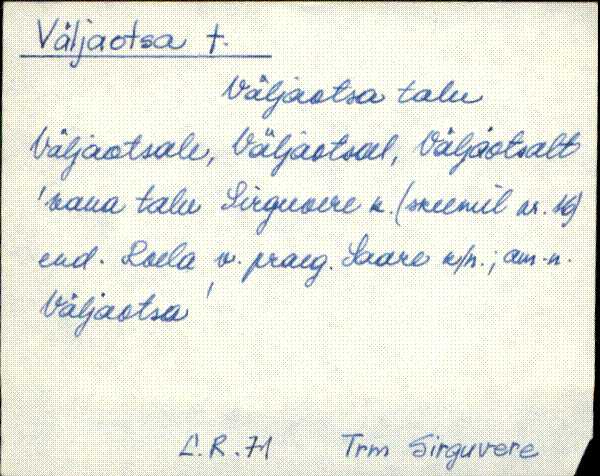 Väljaotsa t.
Väljaotsa talu
Väljaotsale, Väljaotsal, Väljaotsalt
'vana talu Sirguvere k. (skeemil nr. 16)
end. Roela v. praeg. Saare k/n.; am.-n.
Väljaotsa'
L.R. 71 Trm Sirguvere